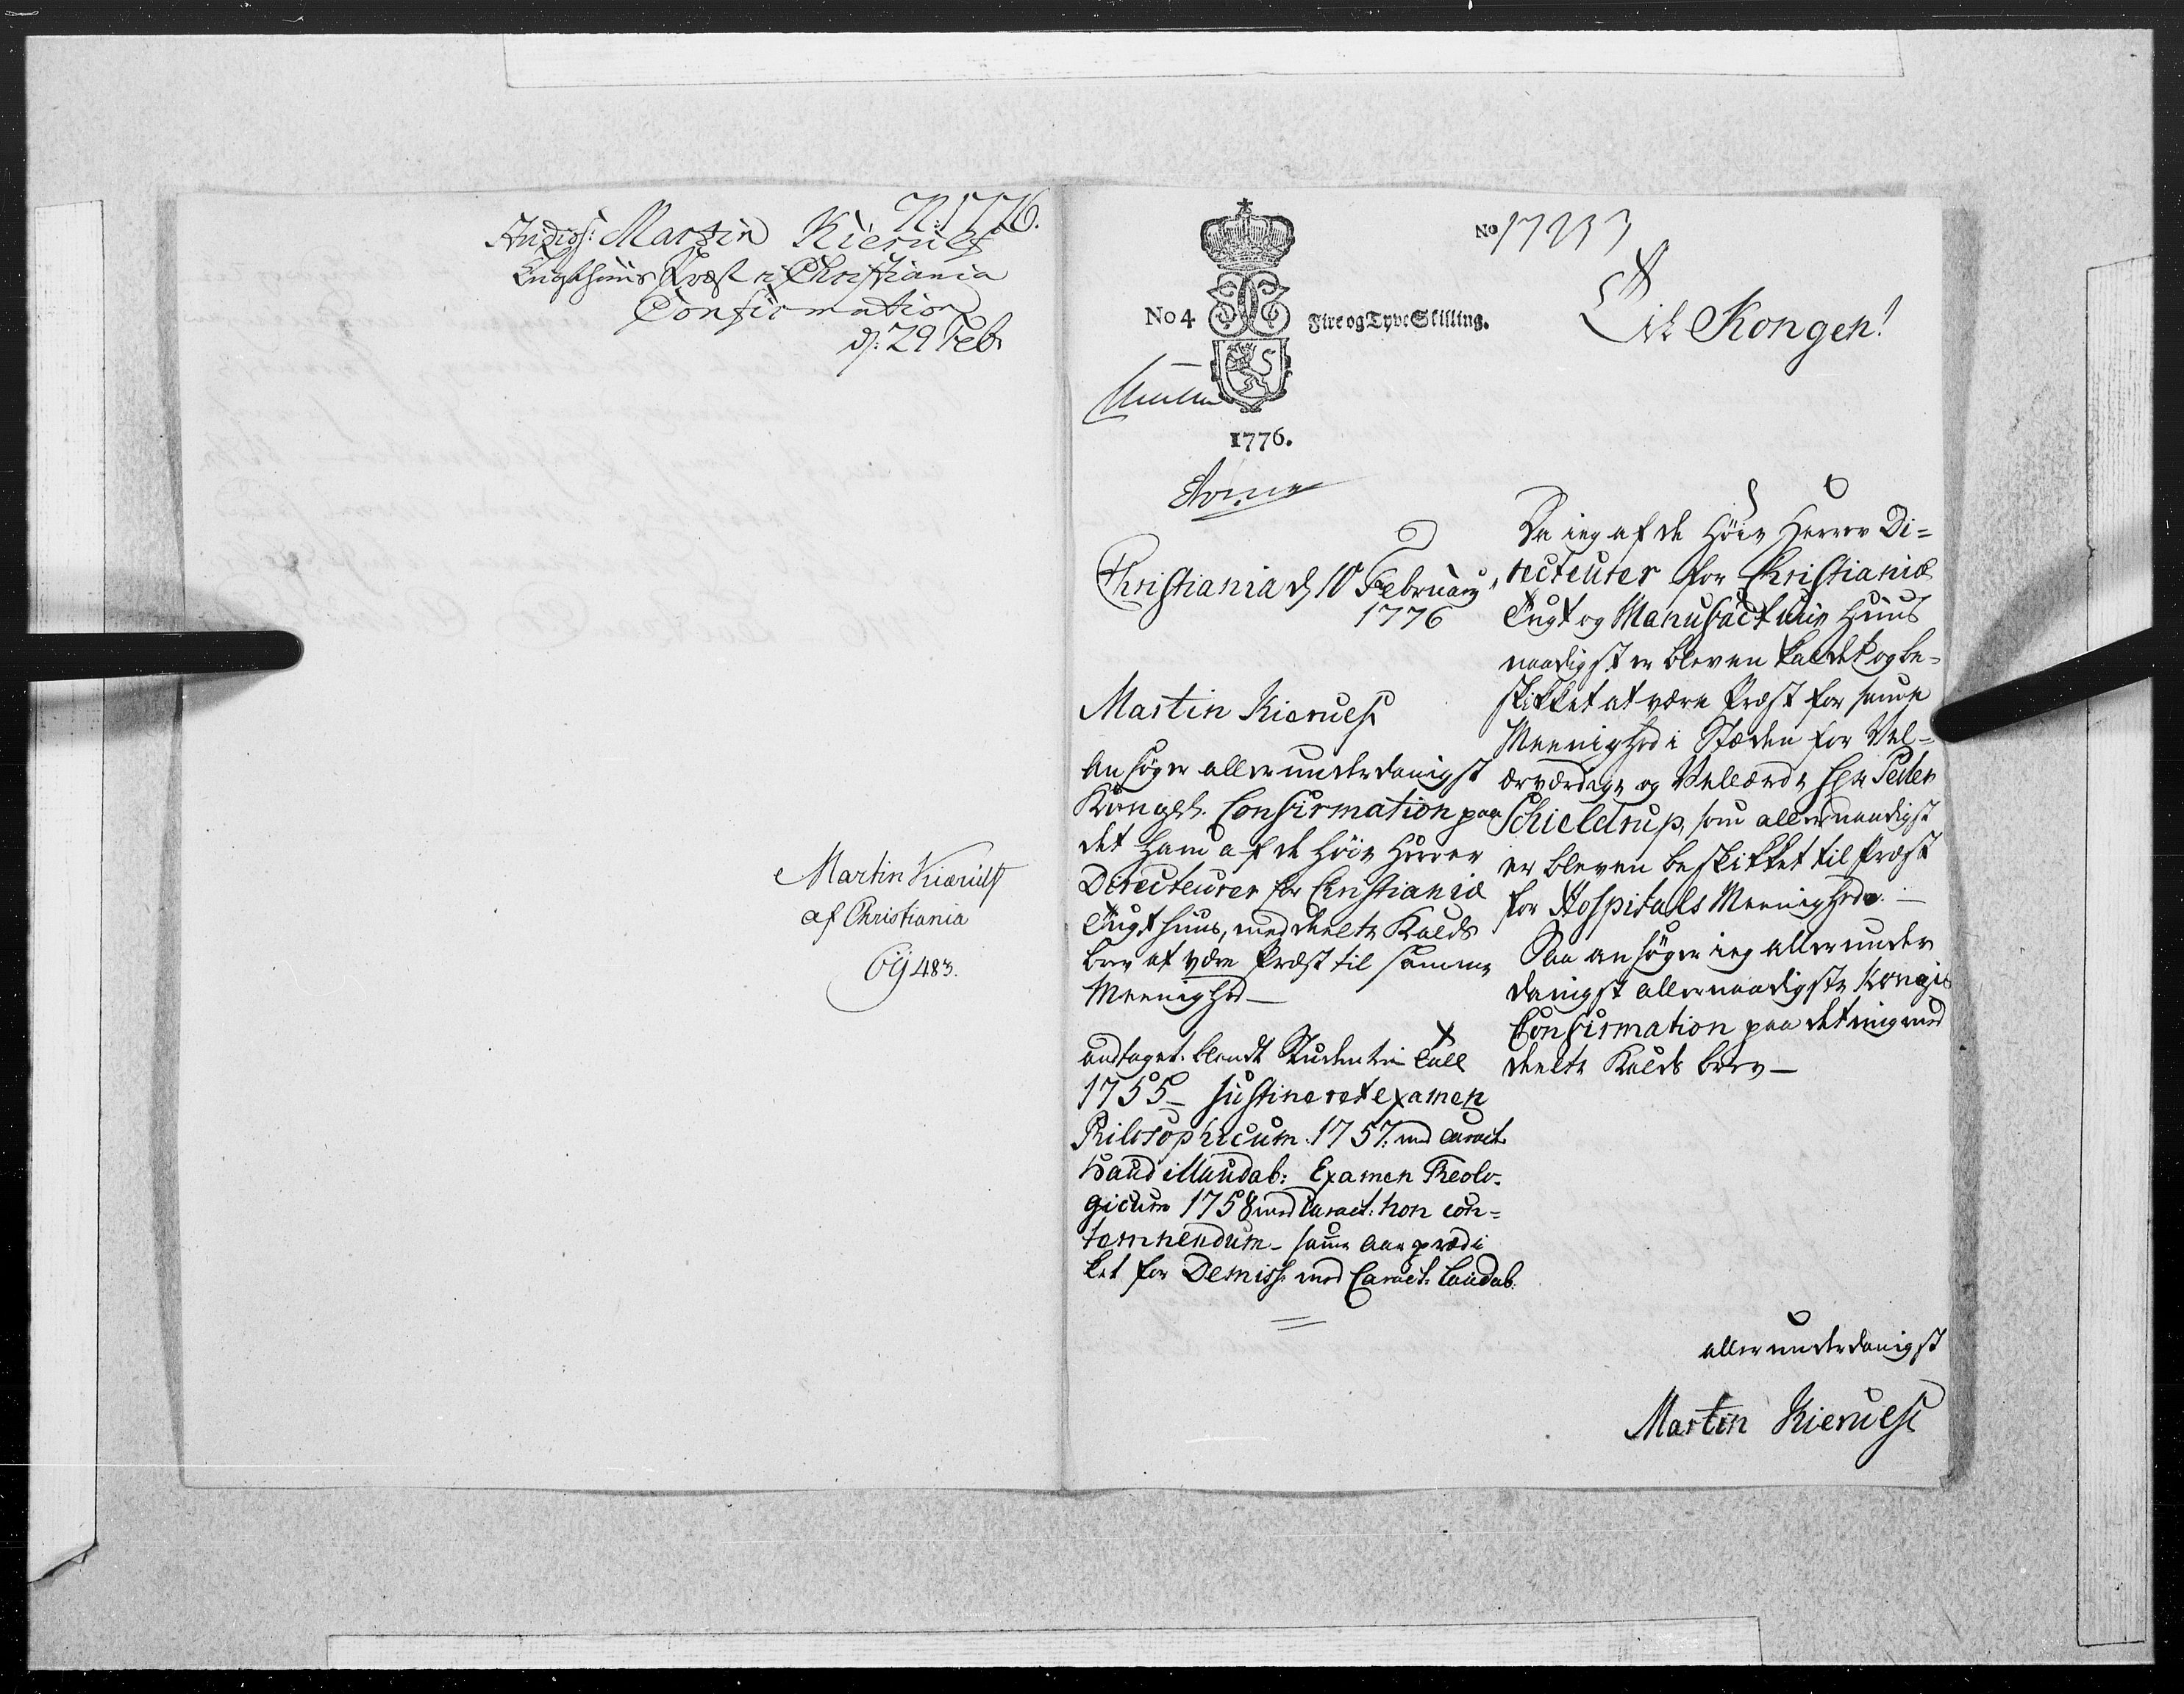 N: 1776.
Studios: Martin Kierulf
Tugthuus Præst i Christiania
Confirmation
d: 29 Feb
Martin Kierulf
af Christiania
483.
No 4
Fire og Tyve Skilling.
1776.
No 17233
Til Kongen!
Christiania d 10 Februarij
1776
Martin Kierulf
ansøger allerunderdanigst
Kongel. Confirmation paa
det ham af de Høie Herrer
Directeurer for Christianiæ
Tugthuus, meddeelte Kalds
brev at være Præst til samme
Meenighed —
antaget blandt Studenterne
1755 — sustineret examen
Philosophicum 1757. med Caract.
haud illaudab: Examen Theolo-
gicum 1758 med Caract: non con=
temnendum — samme Aar prædi
ket for Demiss: med Caract: laudab.
Da ieg af de Høie Herrer Di=
recteurer for Christianiæ
Tugt og Manufactur Huus
naadigst er bleven kaldet og be=
skikket at være Præst for samme
Meenighed i Stæden for Vel=
ærværdige og Vellærde Hr Peder
Schieldrup, som allernaadigst
er bleven beskikket til Præst
for Hospitals Meenighed. —
Saa ansøger ieg allerunder
danigst allernaadigste Kongl
Confirmation paa det mig med
deelte Kalds brev —
allerunderdanigst
Martin Kierulf